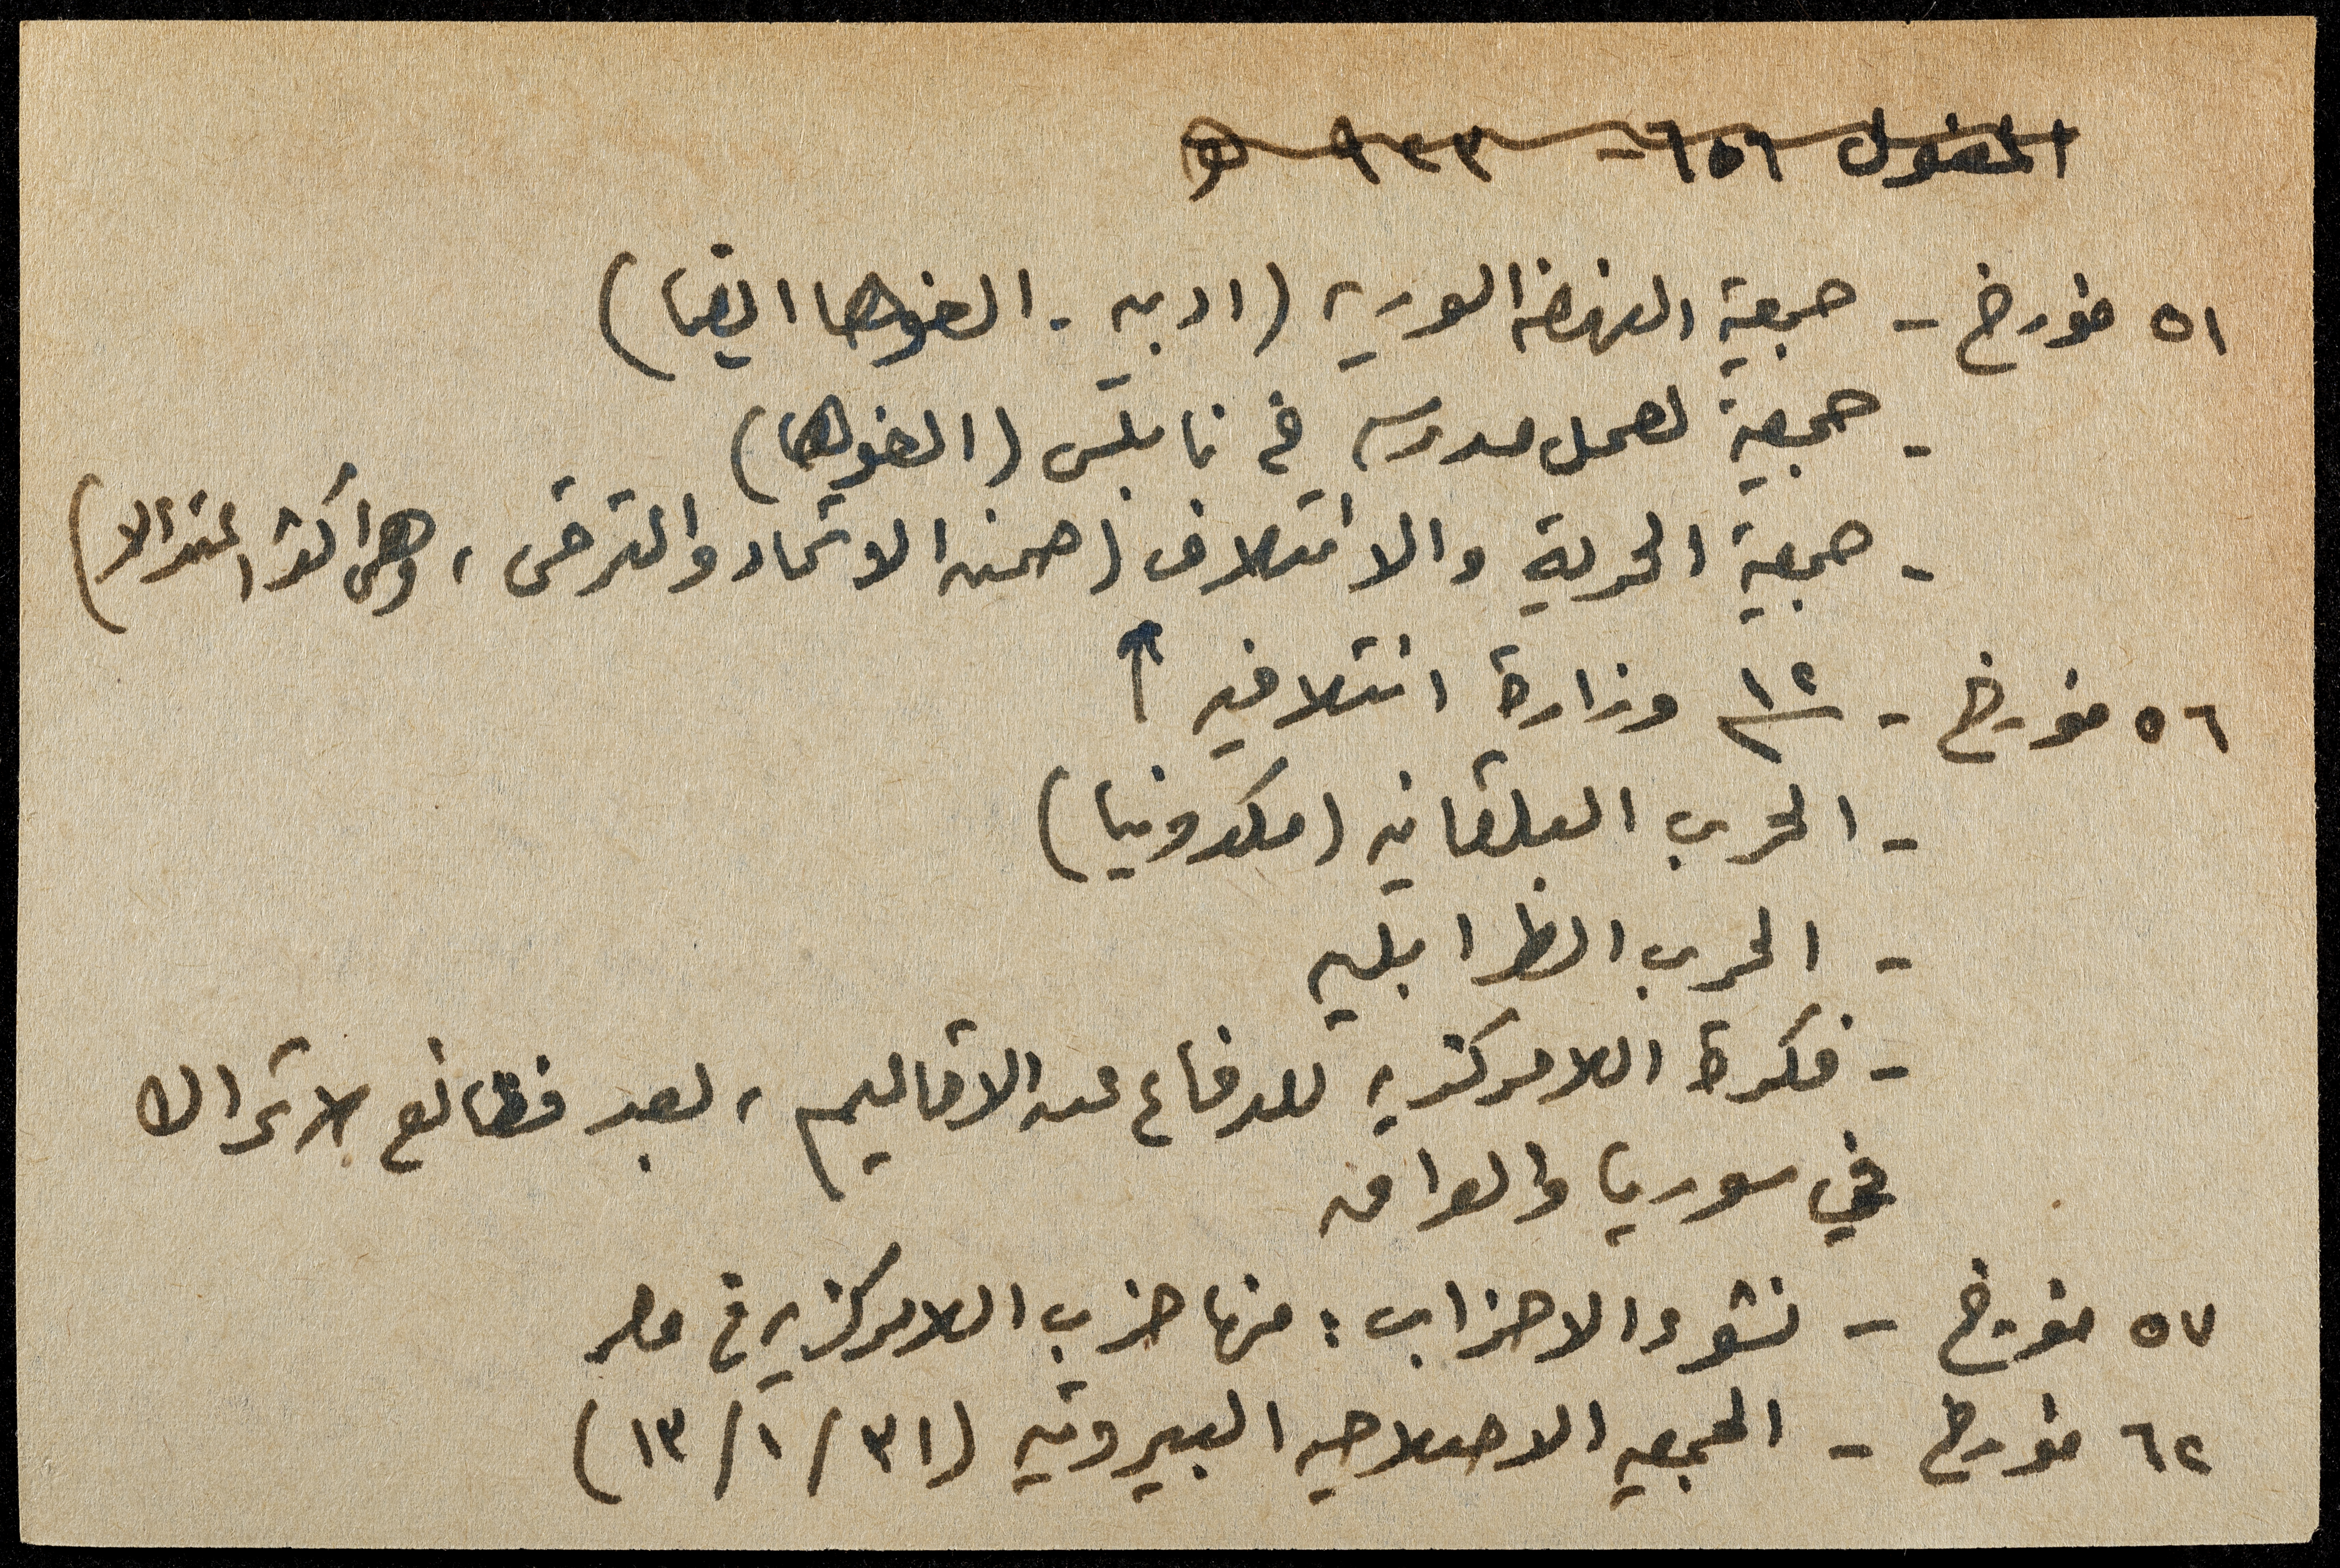 المغول ٦٥٦ - ٩٣٣ ه
٥١ مؤرخ - جمعية النهضه السوريه (ادبيه - الغوها ايضا)
- جمعية لعمل مدرسه في نابلس (الغوها)
- جمعية الحرية والائتلاف (ضمن الاتحاد والترقى ، وهى اكثر اعتدالا)
٥٦ مؤرخ - ١٢ وزارة ائتلافيه ↑
- الحرب البلقانيه (مكدونيا)
- الحرب الطرابليه
- فكرة اللامركزيه للدفاع عن الاقاليم ، بعد فظائع الاتراك
في سوريا والعراق
٥٧ مؤرخ - نشوء الاحزاب : منها حزب اللامركزيه في مصر
٦٢ مؤرخ - الجمعيه الاصلاحيه البيروتيه (٣١/١/١٣)